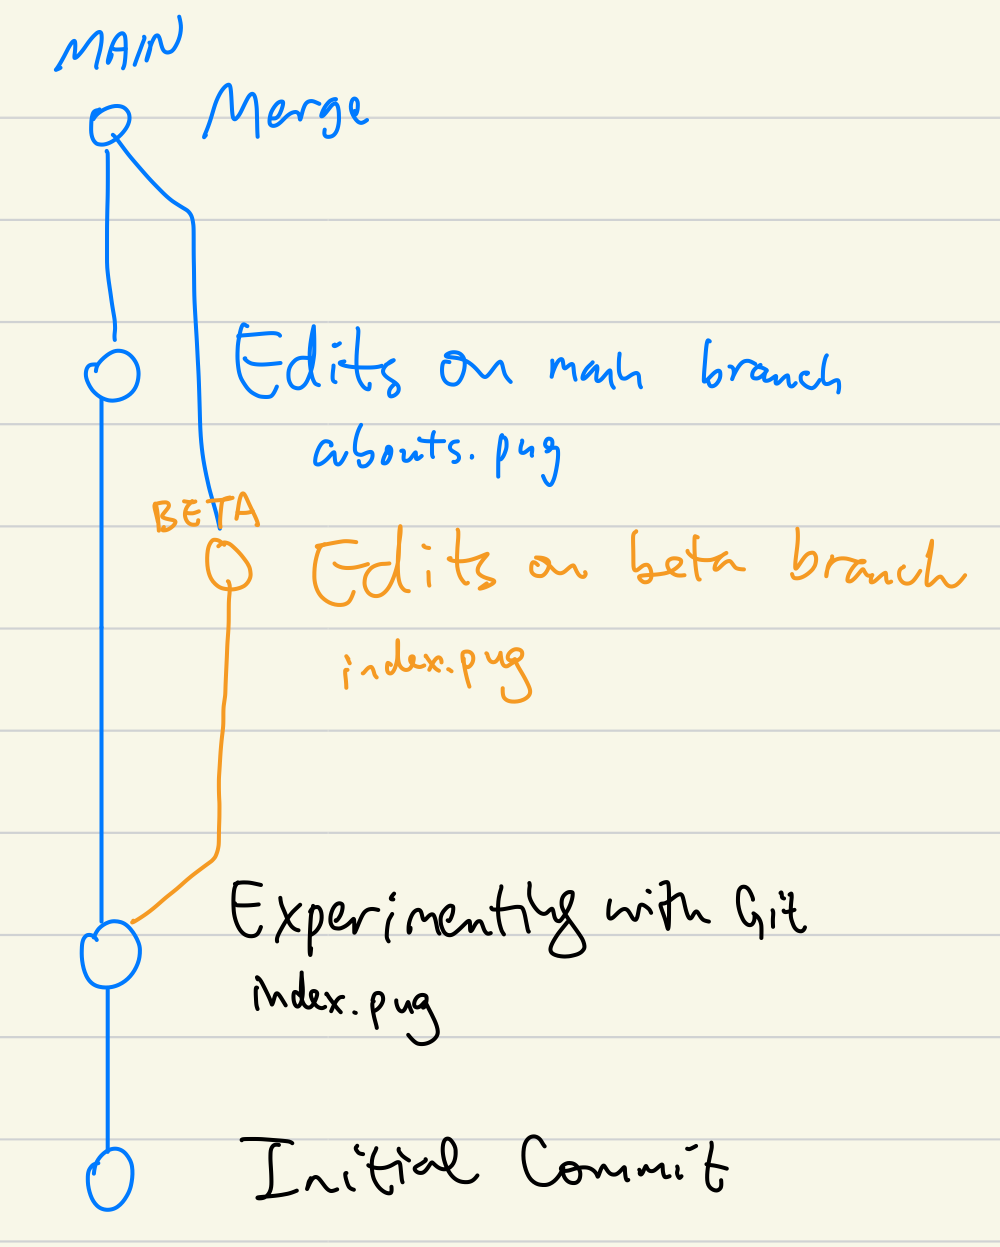 MAIN
Merge
Edits on main branch
abouts.pug
BETA
Edits on beta branch
index.pug
Experimenting with Git
index.pug
Initial Commit